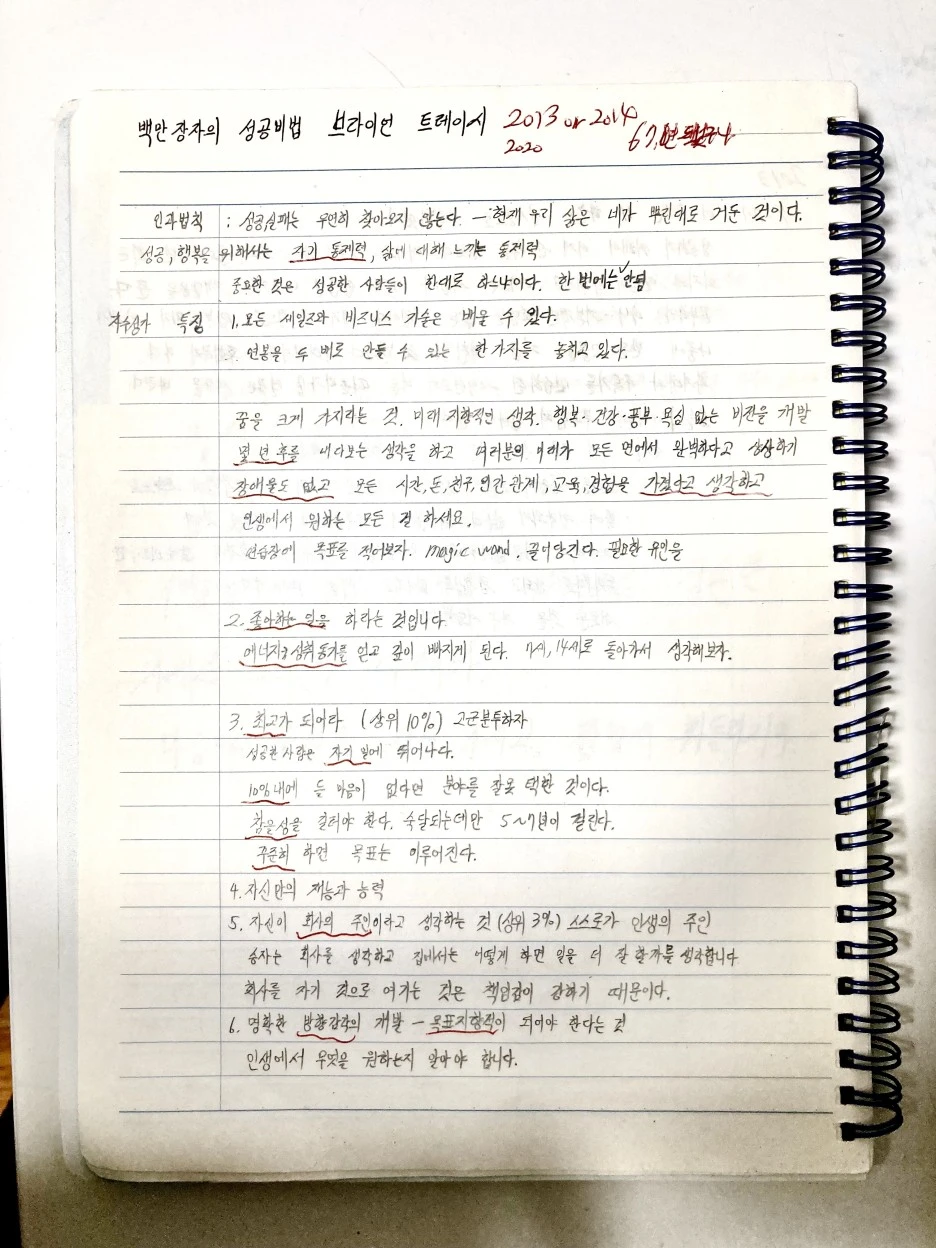 백만장자의 성공비법 브라이언 트레이시 2013 or 2014
2020
인과법칙 : 성공,실패는 우연히 찾아오지 않는다. — 현재 우리 삶은 네가 뿌린대로 거둔 것이다.
성공, 행복을 위해서는 자기 통제력, 삶에 대해 느끼는 통제력
중요한 것은 성공한 사람들이 한대로 하느냐이다. 한 번에는 안됨
자수성가 특징 1. 모든 세일즈와 비즈니스 기술은 배울 수 있다.
연봉을 두 배로 만들 수 있는 한가지를 놓치고 있다.
꿈을 크게 가지라는 것. 미래 지향적인 생각. 행복·건강·풍부·욕심 없는 비전을 개발
몇 년 후를 내다보는 생각을 하고 여러분의 미래가 모든 면에서 완벽하다고 상상하기
장애물도 없고 모든 시간, 돈, 친구, 인간관계, 교육, 경험을 가졌다고 생각하고
인생에서 원하는 모든 걸 하세요.
연습장에 목표를 적어보자. magic wand. 끌어당긴다. 필요한 유인을
2. 좋아하는 일을 하라는 것입니다.
에너지와 성취동기를 얻고 깊이 빠지게 된다. 7세, 14세로 돌아가서 생각해보자.
3. 최고가 되어라 (상위 10%) 고군분투하자
성공한 사람은 자기 일에 뛰어나다.
10% 내에 들 마음이 없다면 분야를 잘못 택한 것이다.
참을성을 길러야 한다. 숙달되는데만 5~7년이 걸린다.
꾸준히 하면 목표는 이루어진다.
4. 자신만의 재능과 능력
5. 자신이 회사의 주인이라고 생각하는 것 (상위 3%) 스스로가 인생의 주인
승자는 회사를 생각하고 집에서는 어떻게 하면 일을 더 잘 할까를 생각합니다
회사를 자기 것으로 여기는 것은 책임감이 강하기 때문이다.
6. 명확한 방향감각의 개발 — 목표지향적이 되어야 한다는 것
인생에서 무엇을 원하는지 알아야 합니다.